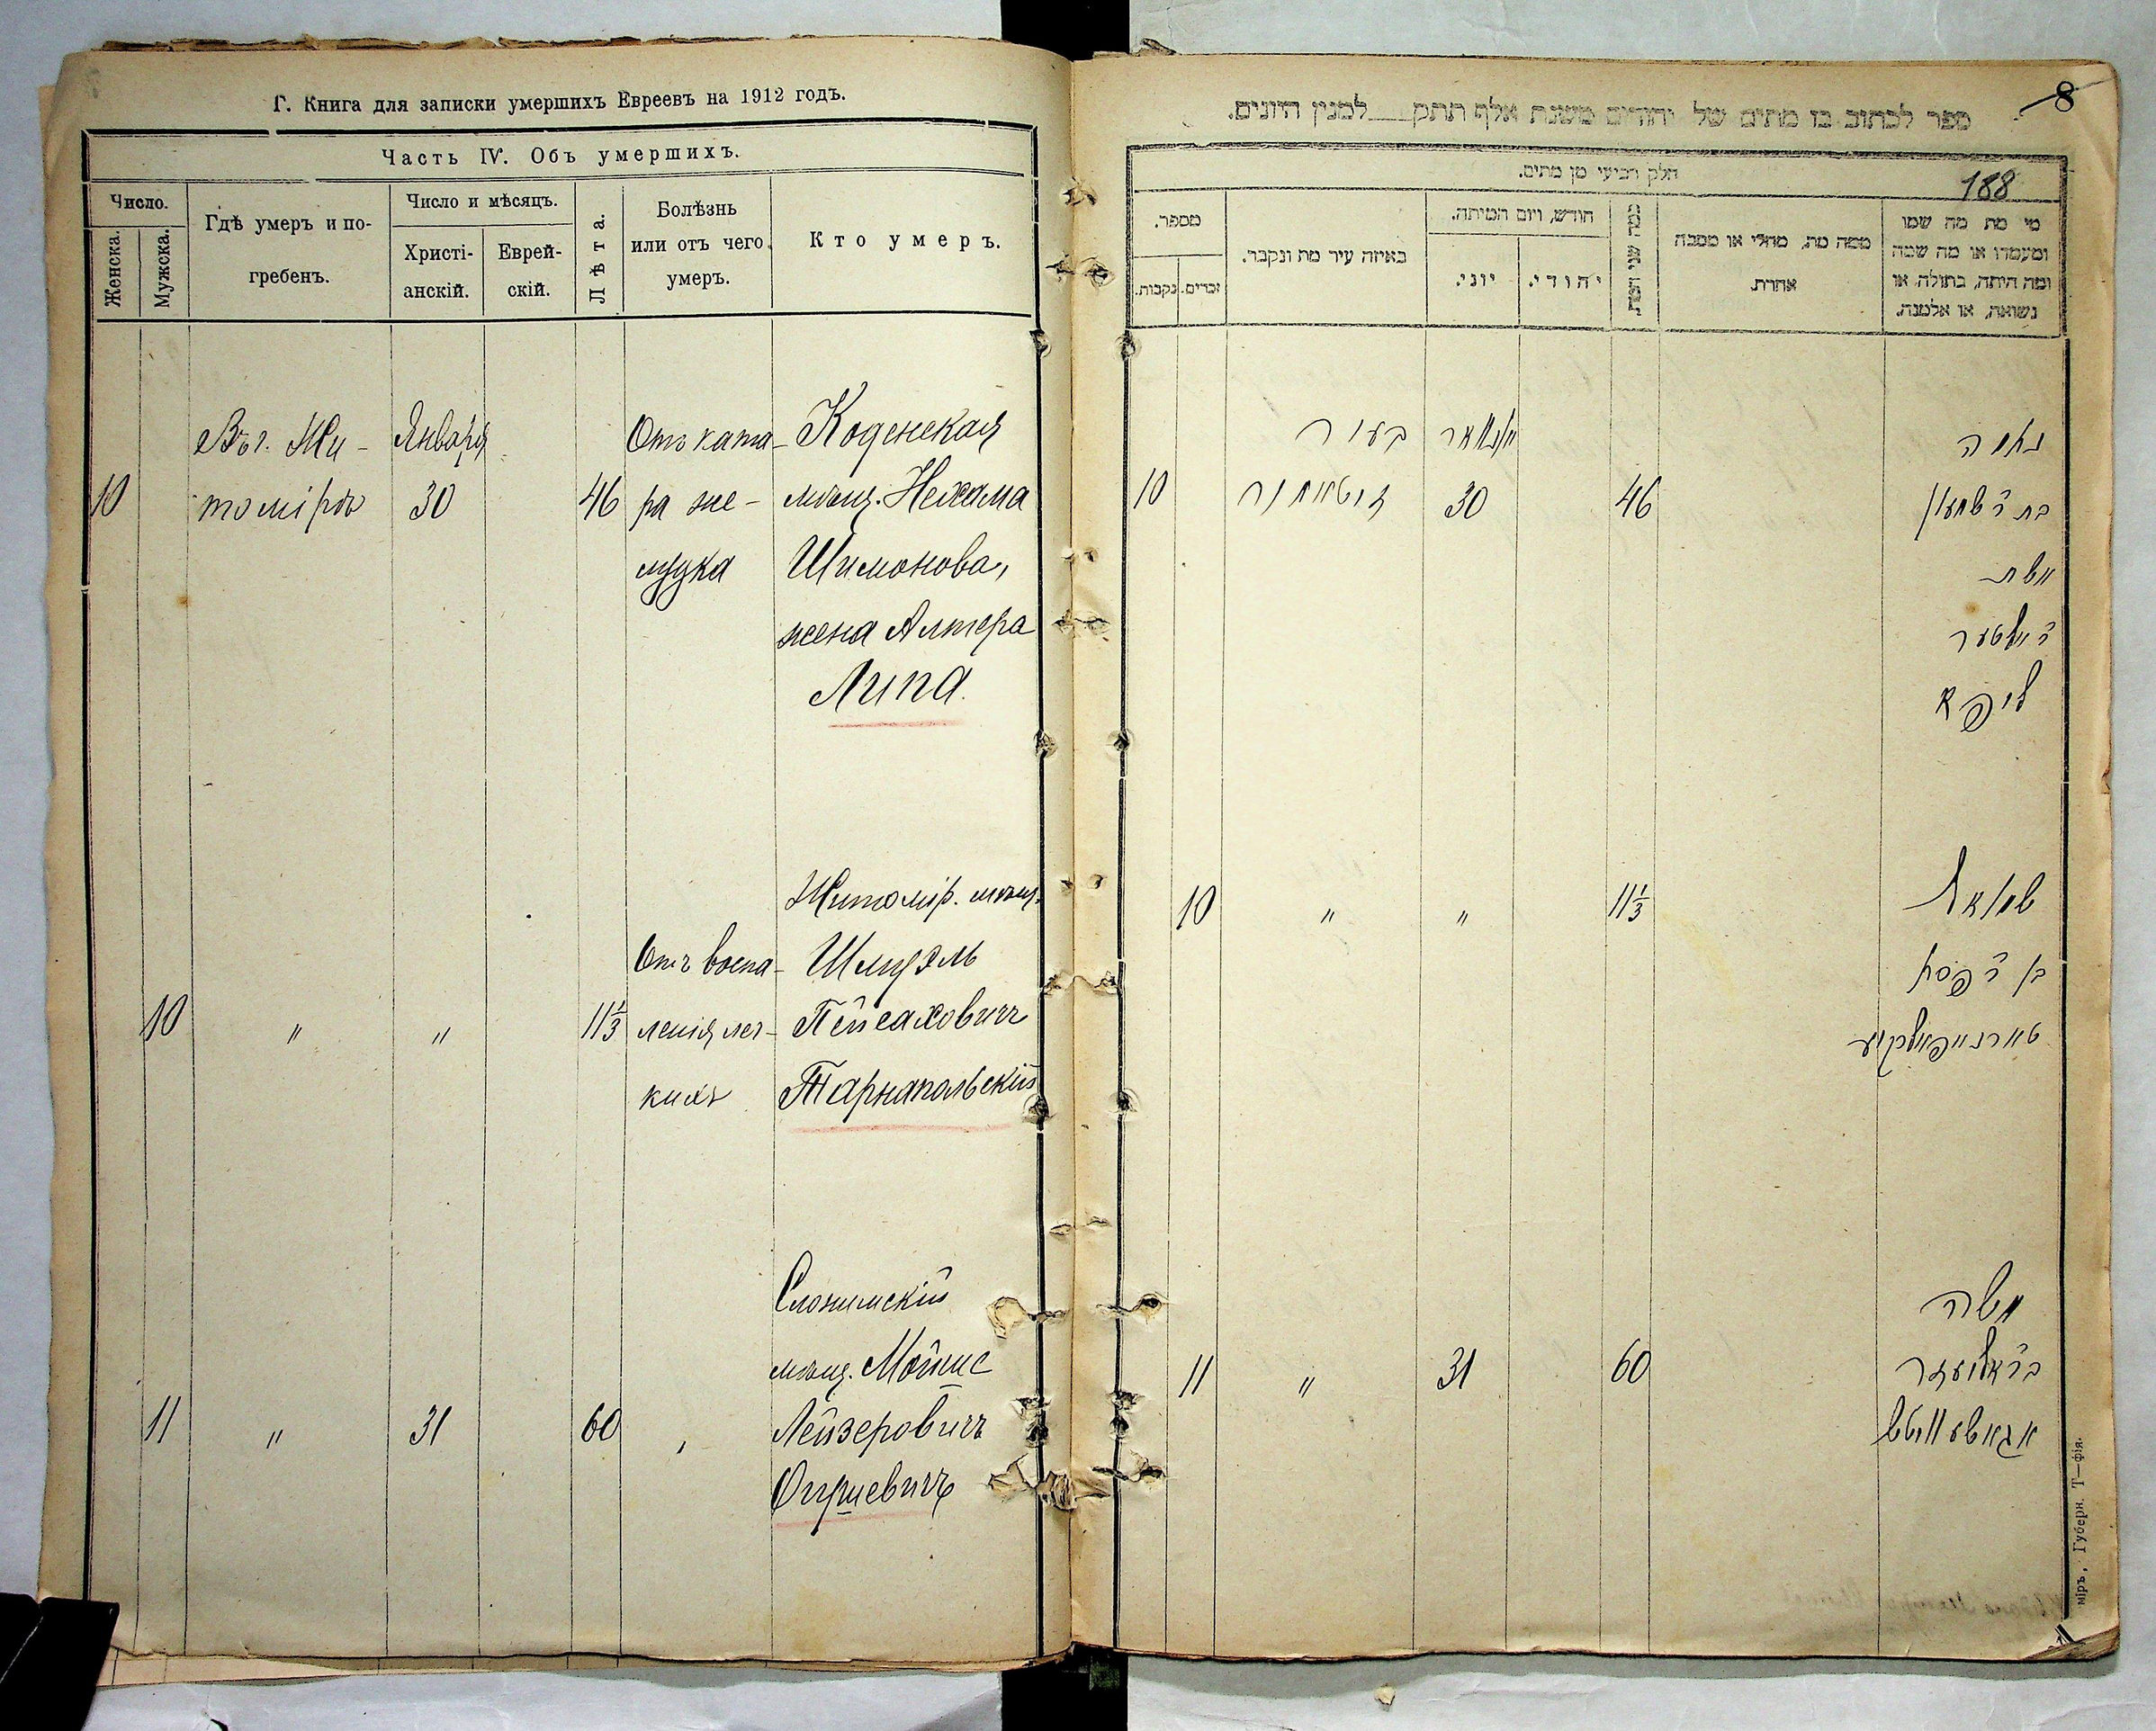 Г. Книга для записки умершихъ Евреевъ на 1912 годъ.
Часть IV. Объ умершихъ.
Число.
Женска.
Мужска.
Гдѣ умеръ и по-
гребенъ.
Число и мѣсяцъ.
Христі-
анскій.
Еврей-
скій.
Лѣта.
Болѣзнь
или отъ чего
умеръ.
Кто умеръ.
Въ г. Жи- Января Отъ ката- Коденская
10 томірѣ 30 46 ра же- мѣщ. Нехама
лудка Шимонова,
жена Алтера
Липа.
Житомір. мѣщ.
Отъ воспа- Шмуэль
10 " " 11⅓ ленія лег- Пейсаховичъ
кихъ Тарнапольскій
Слонимскій
мѣщ. Мойше
11 " 31 60 " Лейзеровичъ
8
188
ספר לכתוב בו מתים של יהודים משנת אלף תתק___למנין היונים.
חלק רביעי מן מתים.
מספר.
נקבות.
זכרים.
באיזה עיר מת ונקבר.
חודש, ויום המיתה.
יוני.
יהודי.
כמה שני המת.
ממה מת, מחלי או מסבה
אחרת.
מי מת מה שמו
ומעמדו או מה שמה
ומה היתה, בתולה או
נשואה, או אלמנה.
10 בעיר זיטאמיר יאנואר 30 46 בת ר שמעון
אשת
ר אלטער
ליפא
10 " " 11⅓ שמואל
בן ר פסח
משה
11 " 31 60 בר אליעזר
міръ, Губерн. Т—фія.